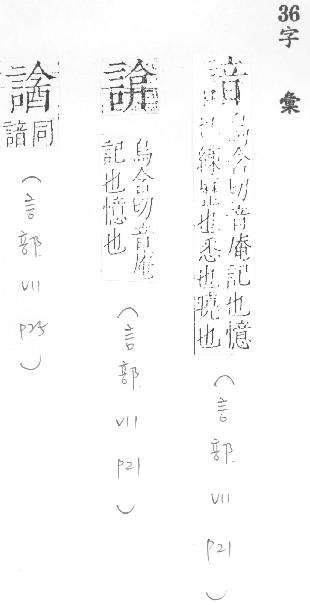 36字彙
烏含切音庵記也憶
練歷也悉也曉也
(言部 VII P21)
烏含切音庵
記也憶也
(言部 VII P21)
同
諳
(言部 VII P25)